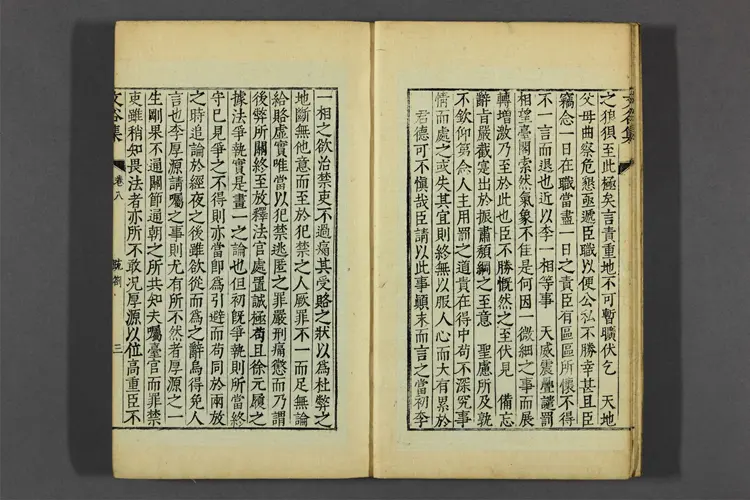 之狼狽至此極矣言責重地不可暫曠伏乞 天地
父母曲察危懇亟遞臣職以便公私不勝幸甚且臣
竊念一日在職當盡一日之責臣有區區所懷不得
不一言而退也近以李一相等事 天威震疊譴罰
相望臺閣索然氣象不佳是何因一微細之事而展
轉增激乃至於此也臣不勝慨然之至伏見 備忘
辭旨嚴截寔出於振肅頹綱之至意 聖慮所及孰
不欽仰第念人主用罰之道貴在得中苟不深究事
情而處之或失其宜則終無以服人心而大有累於
君德可不愼哉臣請以此事顚末而言之當初李
文谷集
卷八
疏劄
三
一相之欲治禁吏不過痛其受賂之狀以爲杜弊之
地斷無他意而至於犯禁之人厥罪不一而足無論
給賂虛實唯當以犯禁逃匿之罪嚴刑痛懲而乃謂
後弊所關終至放釋法官處置誠極苟且徐元履之
據法爭執實是畫一之論也但初旣爭執則所當終
守已見爭之不得則亦當卽爲引避而苟同於兩放
之時追論於經夜之後雖欲從而爲之辭烏得免人
言也李厚源請囑之事則尤有所不然者厚源之一
生剛果不通關節通朝之所共知夫囑臺官而罪禁
吏雖稍知畏法者亦所不敢况厚源以位高重臣不